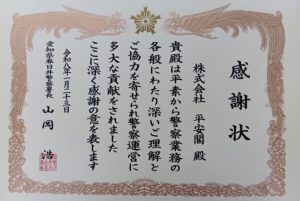 感謝状
株式会社 平安閣 殿
貴殿は平素から警察業務の
各般にわたり深いご理解と
ご協力を寄せられ警察運営に
多大な貢献をされました
ここに深く感謝の意を表します
令和八年一月二十三日
愛知県春日井警察署長
山岡 浩